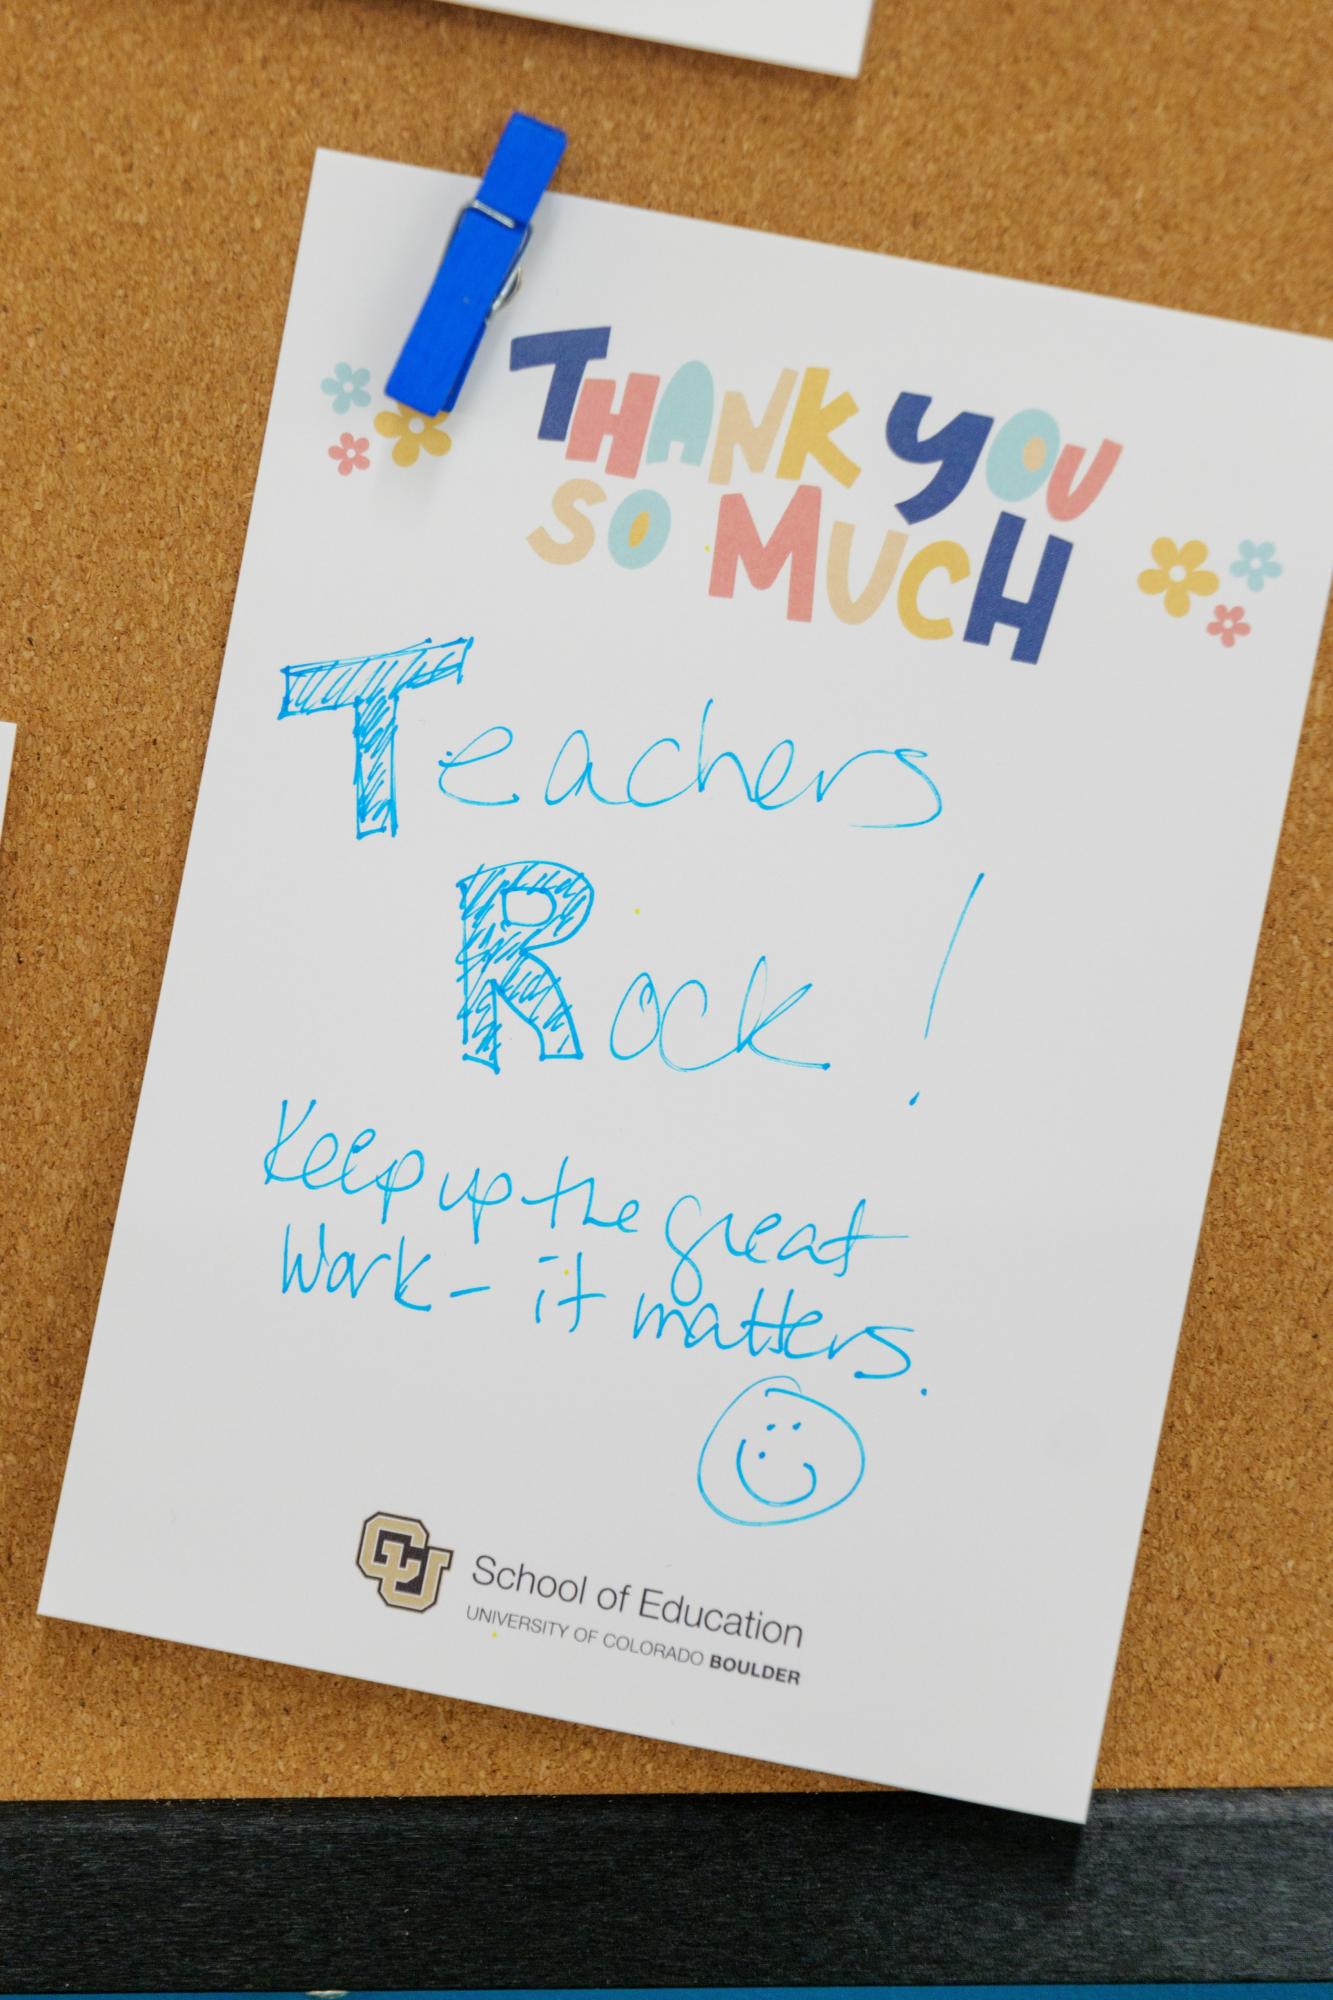 THANK YOU
SO MUCH
Teachers
Rock!
Keep up the great
work - it matters.
CU
School of Education
UNIVERSITY OF COLORADO BOULDER